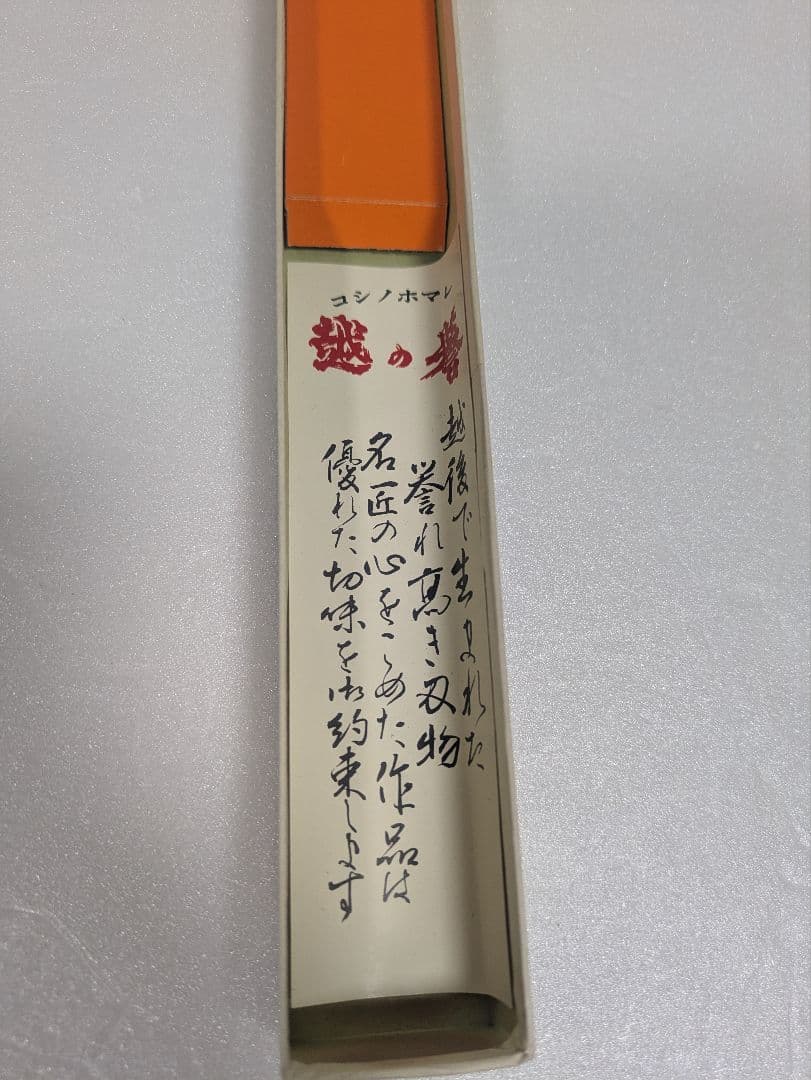 コシノホマレ
越の誉
越後で生まれた
誉れ高き刃物
名匠の心をこめた作品は
優れた切味を御約束します